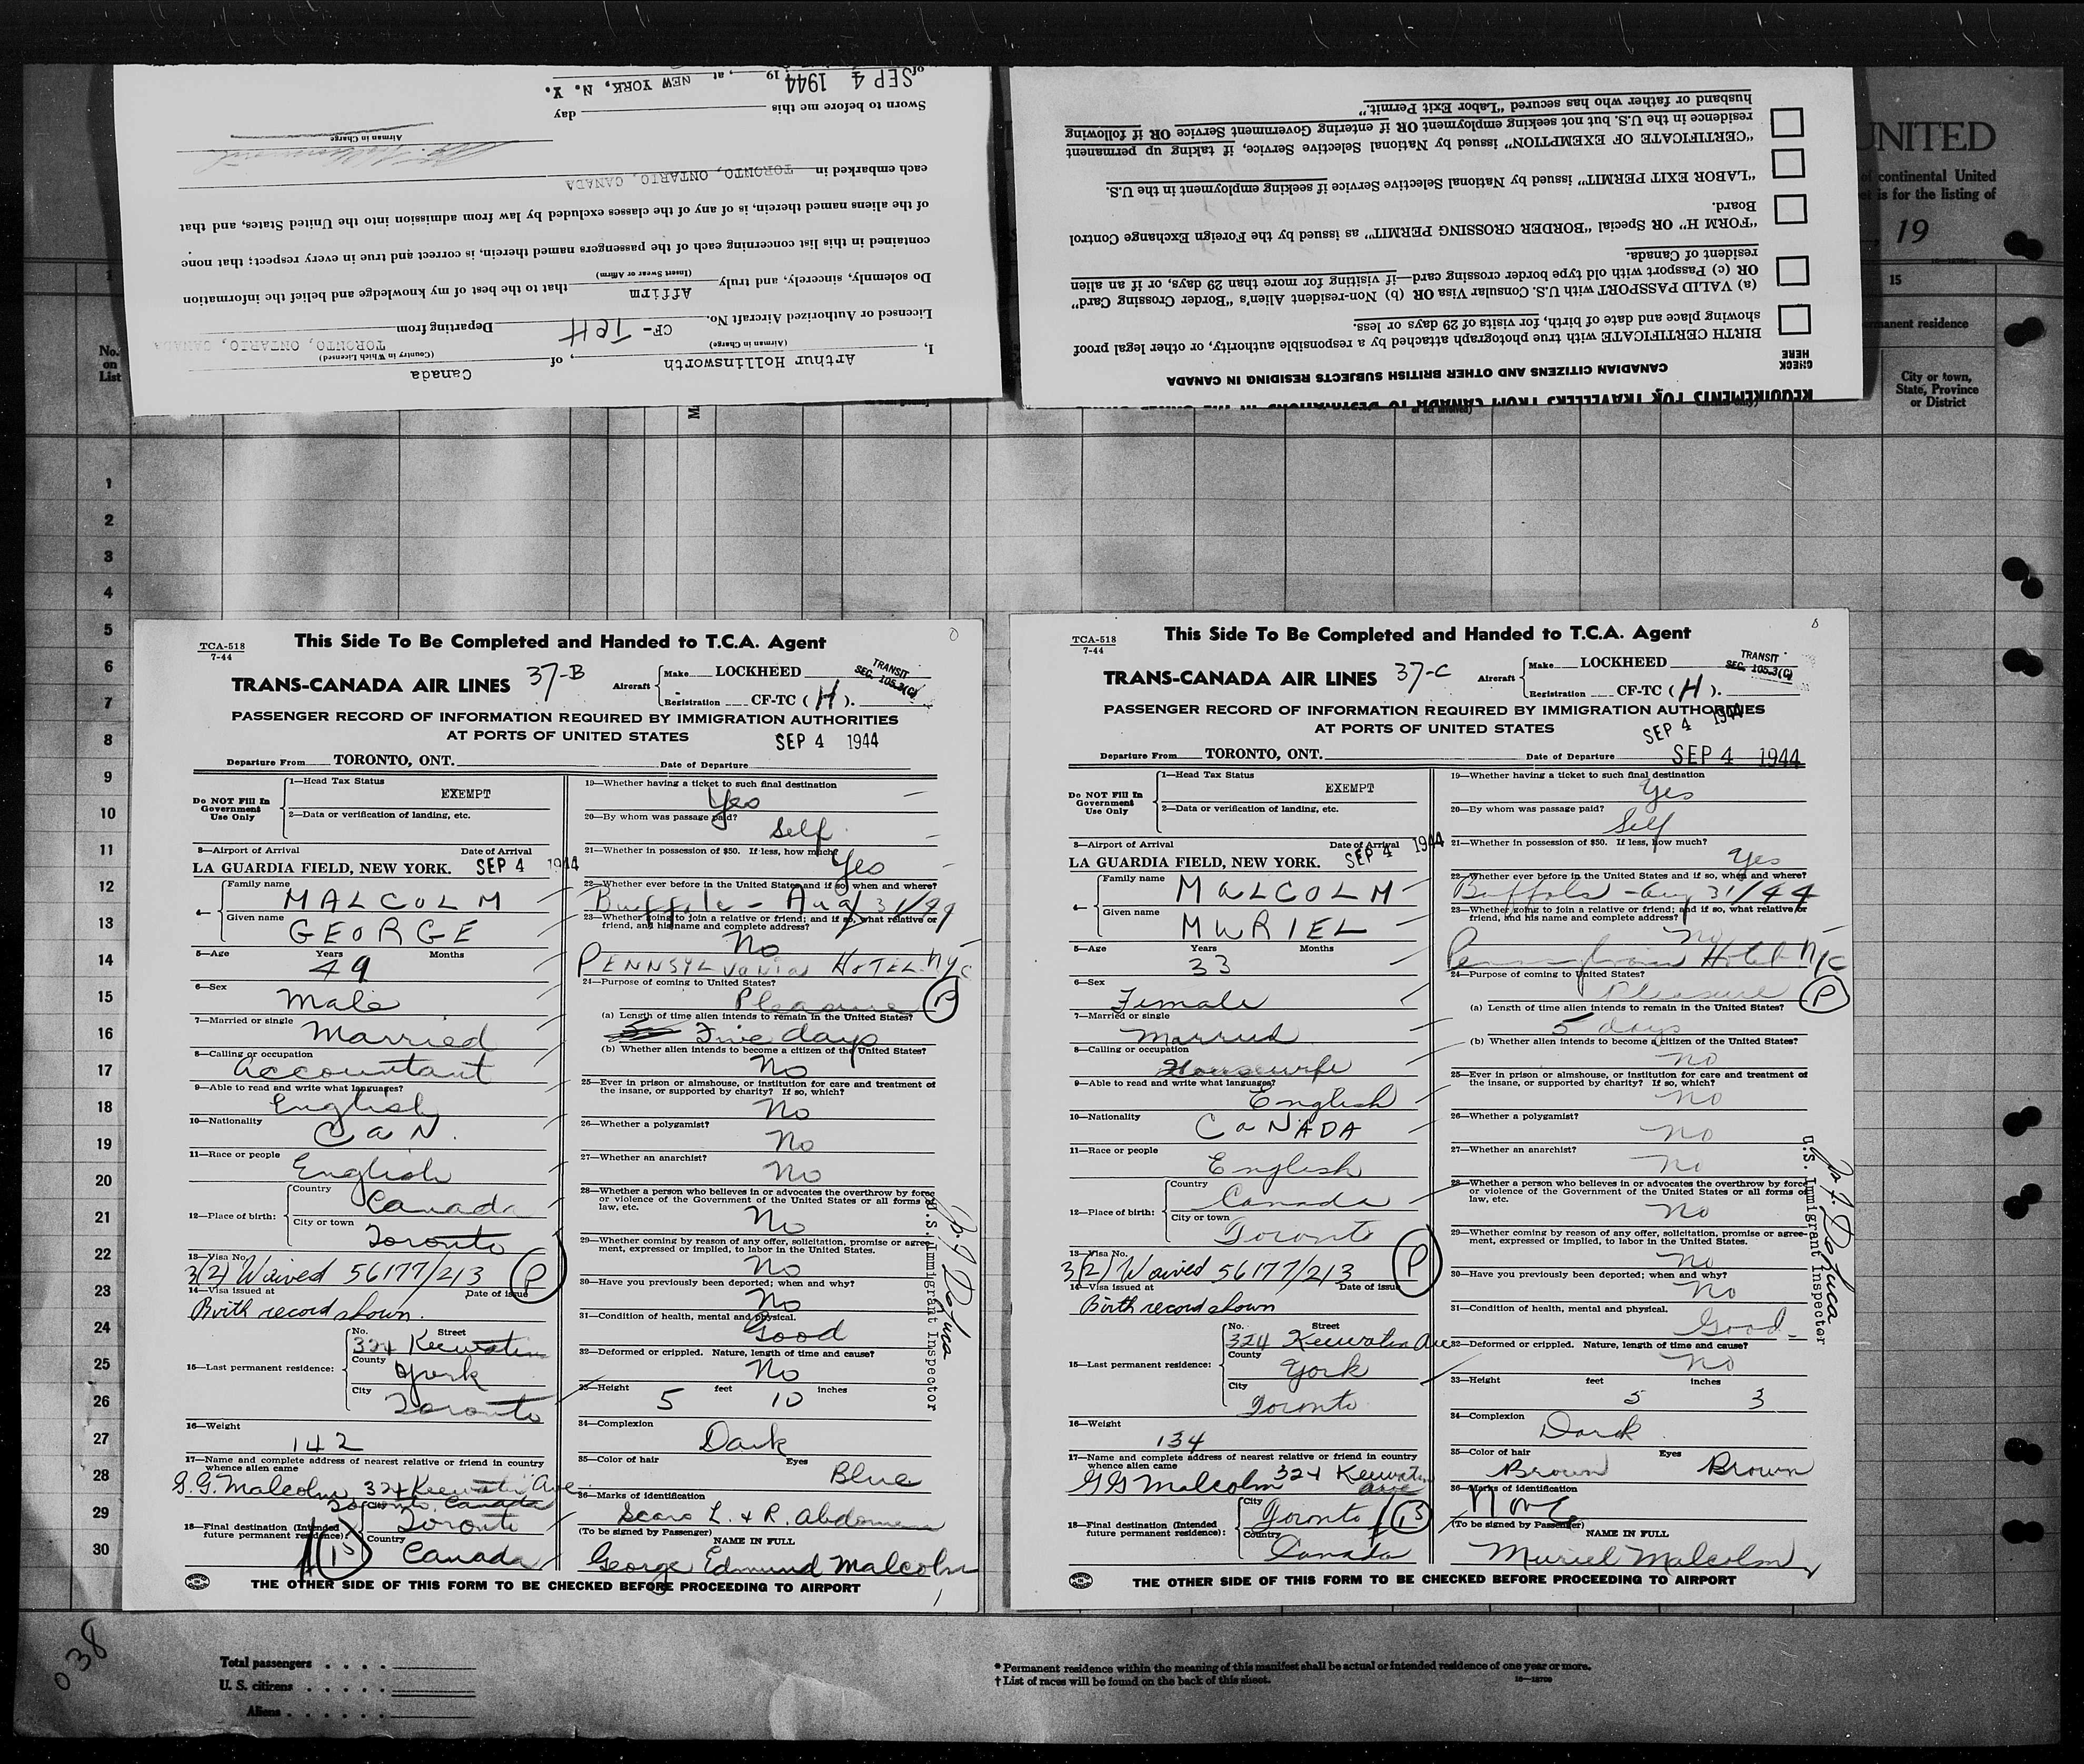 of SEP 4 1944 19 , at NEW YORK, N. Y.
Sworn to before me this day
Airman in Charge
each embarked in TORONTO, ONTARIO, CANADA
of the aliens named therein, is of any of the classes excluded by law from admission into the United States, and that
contained in this list concerning each of the passengers named therein, is correct and true in every respect; that none
(Insert Swear or Affirm)
Do solemnly, sincerely, and truly Affirm that to the best of my knowledge and belief the information
Licensed or Authorized Aircraft No. CF-TCH Departing from TORONTO, ONTARIO, CANADA
(Airman in Charge) (Country in Which Licensed)
I, Arthur Hollinsworth, of Canada
husband or father who has secured "Labor Exit Permit."
residence in the U.S. but not seeking employment OR if entering Government Service OR if following
"CERTIFICATE OF EXEMPTION" issued by National Selective Service, if taking up permanent
"LABOR EXIT PERMIT" issued by National Selective Service if seeking employment in the U.S.
Board.
"FORM H" OR Special "BORDER CROSSING PERMIT" as issued by the Foreign Exchange Control
resident of Canada.
OR (c) Passport with old type border crossing card—if visiting for more than 29 days, or if an alien
(a) VALID PASSPORT with U.S. Consular Visa OR (b) Non-resident Alien's "Border Crossing Card"
showing place and date of birth, for visits of 29 days or less.
BIRTH CERTIFICATE with true photograph attached by a responsible authority, or other legal proof
CHECK HERE
CANADIAN CITIZENS AND OTHER BRITISH SUBJECTS RESIDING IN CANADA
REQUIREMENTS FOR TRAVELLERS FROM CANADA TO DESTINATIONS IN THE
UNITED
of continental United
is for the listing of
, 19
15
permanent residence
City or town,
State, Province
or District
No.
on
List
1
2
3
4
5
6
7
8
9
10
11
12
13
14
15
16
17
18
19
20
21
22
23
24
25
26
27
28
29
30
TCA-518
7-44
This Side To Be Completed and Handed to T.C.A. Agent
TRANS-CANADA AIR LINES 37-B
Aircraft Make LOCKHEED
Registration CF-TC (H).
TRANSIT
SEC. 105.3(C)
PASSENGER RECORD OF INFORMATION REQUIRED BY IMMIGRATION AUTHORITIES
AT PORTS OF UNITED STATES SEP 4 1944
Departure From TORONTO, ONT. Date of Departure
Do NOT Fill In
Government
Use Only
1—Head Tax Status
EXEMPT
2—Data or verification of landing, etc.
3—Airport of Arrival Date of Arrival
LA GUARDIA FIELD, NEW YORK. SEP 4 1944
4— Family name
MALCOLM
Given name
GEORGE
5—Age Years Months
49
6—Sex
Male
7—Married or single
Married
8—Calling or occupation
Accountant
9—Able to read and write what languages?
English
10—Nationality
CaN.
11—Race or people
English
12—Place of birth: Country
Canada
City or town
Toronto
13—Visa No.
3(2) Waived 56177/213 P
14—Visa issued at Date of issue
Birth record shown.
15—Last permanent residence: No. Street
324 Keewatin
County
York
City
Toronto
16—Weight
142
17—Name and complete address of nearest relative or friend in country
whence alien came
G.G. Malcolm 324 Keewatin Ave.
Toronto, Canada
18—Final destination (Intended
future permanent residence):
Toronto
Country
Canada
19—Whether having a ticket to such final destination
Yes
20—By whom was passage paid?
Self
21—Whether in possession of $50. If less, how much?
Yes
22—Whether ever before in the United States and if so, when and where?
Buffalo - Aug 31/44
23—Whether going to join a relative or friend; and if so, what relative or
friend, and his name and complete address?
No
PENNSYLVANIA HOTEL NYC
24—Purpose of coming to United States?
Pleasure P
(a) Length of time alien intends to remain in the United States?
Five days
(b) Whether alien intends to become a citizen of the United States?
No
25—Ever in prison or almshouse, or institution for care and treatment of
the insane, or supported by charity? If so, which?
No
26—Whether a polygamist?
No
27—Whether an anarchist?
No
28—Whether a person who believes in or advocates the overthrow by force
or violence of the Government of the United States or all forms of
law, etc.
No
29—Whether coming by reason of any offer, solicitation, promise or agree-
ment, expressed or implied, to labor in the United States.
No
30—Have you previously been deported; when and why?
No
31—Condition of health, mental and physical.
Good
32—Deformed or crippled. Nature, length of time and cause?
No
33—Height 5 feet 10 inches
34—Complexion
Dark
35—Color of hair Eyes
Blue
36—Marks of identification
Scars L. & R. Abdomen
(To be signed by Passenger) NAME IN FULL
George Edmund Malcolm
U.S. Immigrant Inspector
THE OTHER SIDE OF THIS FORM TO BE CHECKED BEFORE PROCEEDING TO AIRPORT
TCA-518
7-44
This Side To Be Completed and Handed to T.C.A. Agent
TRANS-CANADA AIR LINES 37-C
Aircraft Make LOCKHEED
Registration CF-TC (H).
TRANSIT
SEC. 105.3(C)
PASSENGER RECORD OF INFORMATION REQUIRED BY IMMIGRATION AUTHORITIES
AT PORTS OF UNITED STATES SEP 4 1944
Departure From TORONTO, ONT. Date of Departure SEP 4 1944
Do NOT Fill In
Government
Use Only
1—Head Tax Status
EXEMPT
2—Data or verification of landing, etc.
3—Airport of Arrival Date of Arrival
LA GUARDIA FIELD, NEW YORK. SEP 4 1944
4— Family name
MALCOLM
Given name
MURIEL
5—Age Years Months
33
6—Sex
Female
7—Married or single
Married
8—Calling or occupation
Housewife
9—Able to read and write what languages?
English
10—Nationality
CaNADA
11—Race or people
English
12—Place of birth: Country
Canada
City or town
Toronto
13—Visa No.
3(2) Waived 56177/213 P
14—Visa issued at Date of issue
Birth record shown
15—Last permanent residence: No. Street
324 Keewatin Ave
County
York
City
Toronto
16—Weight
134
17—Name and complete address of nearest relative or friend in country
whence alien came
GG Malcolm 324 Keewatin
Ave
18—Final destination (Intended
future permanent residence):
City
Toronto
Country
Canada
19—Whether having a ticket to such final destination
Yes
20—By whom was passage paid?
Self
21—Whether in possession of $50. If less, how much?
Yes
22—Whether ever before in the United States and if so, when and where?
Buffalo - Aug 31/44
23—Whether going to join a relative or friend; and if so, what relative or
friend, and his name and complete address?
no
Pennsylvania Hotel NYC
24—Purpose of coming to United States?
Pleasure P
(a) Length of time alien intends to remain in the United States?
5 days
(b) Whether alien intends to become a citizen of the United States?
no
25—Ever in prison or almshouse, or institution for care and treatment of
the insane, or supported by charity? If so, which?
no
26—Whether a polygamist?
no
27—Whether an anarchist?
no
28—Whether a person who believes in or advocates the overthrow by force
or violence of the Government of the United States or all forms of
law, etc.
no
29—Whether coming by reason of any offer, solicitation, promise or agree-
ment, expressed or implied, to labor in the United States.
no
30—Have you previously been deported; when and why?
no
31—Condition of health, mental and physical.
Good
32—Deformed or crippled. Nature, length of time and cause?
no
33—Height feet inches
5 3
34—Complexion
Dark
35—Color of hair Eyes
Brown Brown
36—Marks of identification
None
(To be signed by Passenger) NAME IN FULL
Muriel Malcolm
U.S. Immigrant Inspector
THE OTHER SIDE OF THIS FORM TO BE CHECKED BEFORE PROCEEDING TO AIRPORT
038
Total passengers . . . .
U. S. citizens . . . . .
Aliens . . . . . .
* Permanent residence within the meaning of this manifest shall be actual or intended residence of one year or more.
† List of races will be found on the back of this sheet.